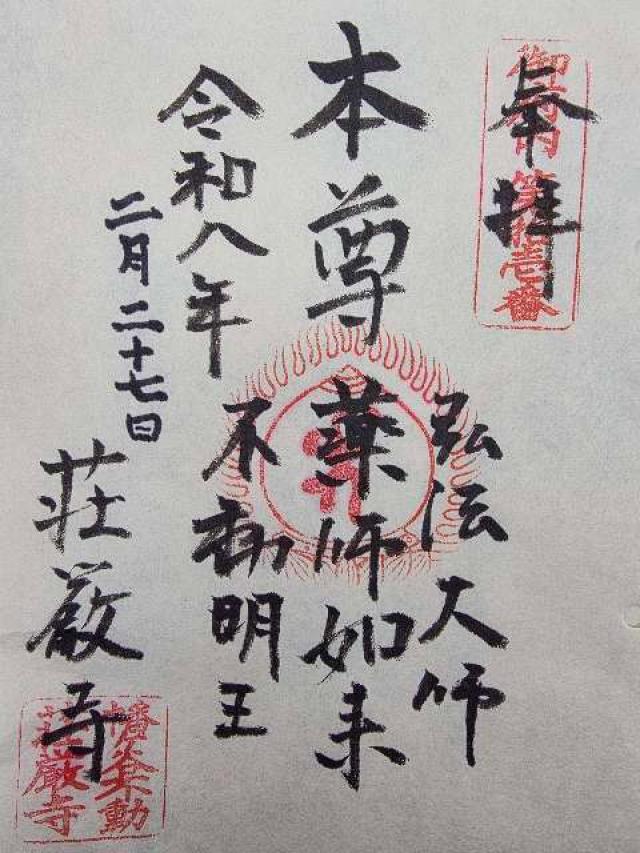 奉拝
第拾壱番
弘法大師
本尊
薬師如来
不動明王
令和八年
二月二十七日
荘厳寺
幡ヶ谷不動
荘厳寺